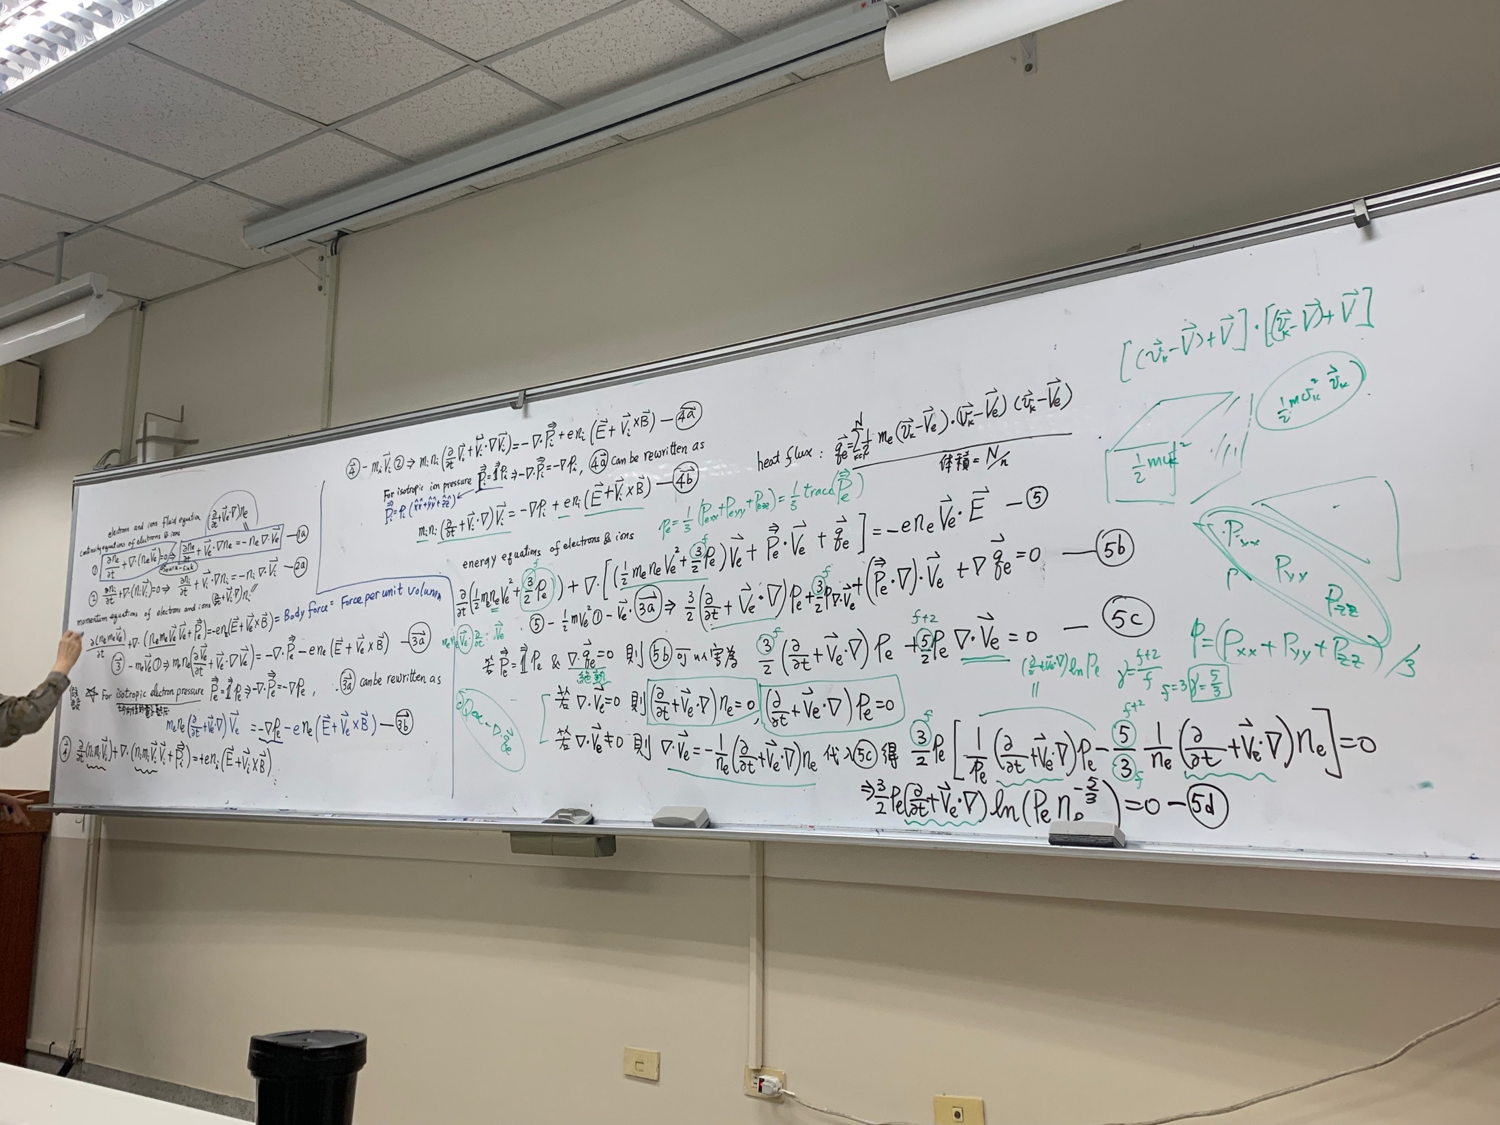 electrons and ions fluid equation
continuity equations of electrons & ions
① ∂nₑ/∂t + ∇·(nₑV⃗ₑ)=0 ⇒ ∂nₑ/∂t + V⃗ₑ·∇nₑ = −nₑ∇·V⃗ₑ —(1a)
② ∂nᵢ/∂t + ∇·(nᵢV⃗ᵢ)=0 ⇒ ∂nᵢ/∂t + V⃗ᵢ·∇nᵢ = −nᵢ∇·V⃗ᵢ —(2a)
momentum equations of electrons and ions
∂(nₑmₑV⃗ₑ)/∂t + ∇·(nₑmₑV⃗ₑV⃗ₑ + P⃗⃗ₑ) = −enₑ(E⃗+V⃗ₑ×B⃗) = Body force = Force per unit volume
③ − mₑV⃗ₑ① ⇒ mₑnₑ(∂V⃗ₑ/∂t + V⃗ₑ·∇V⃗ₑ) = −∇·P⃗⃗ₑ − enₑ(E⃗+V⃗ₑ×B⃗) —(3a)
For isotropic electron pressure P⃗⃗ₑ = 1⃗⃗Pₑ ⇒ −∇·P⃗⃗ₑ = −∇Pₑ , (3a) can be rewritten as
mₑnₑ(∂/∂t + V⃗ₑ·∇)V⃗ₑ = −∇Pₑ − enₑ(E⃗+V⃗ₑ×B⃗) —(3b)
④ ∂/∂t(nᵢmᵢV⃗ᵢ) + ∇·(nᵢmᵢV⃗ᵢV⃗ᵢ + P⃗⃗ᵢ) = +enᵢ(E⃗+V⃗ᵢ×B⃗)
④ − mᵢV⃗ᵢ② ⇒ mᵢnᵢ(∂/∂t V⃗ᵢ + V⃗ᵢ·∇V⃗ᵢ) = −∇·P⃗⃗ᵢ + enᵢ(E⃗+V⃗ᵢ×B⃗) —(4a)
For isotropic ion pressure P⃗⃗ᵢ = 1⃗⃗Pᵢ ⇒ −∇·P⃗⃗ᵢ = −∇Pᵢ , (4a) can be rewritten as
P⃗⃗ᵢ = Pᵢ(x̂x̂+ŷŷ+ẑẑ)
mᵢnᵢ(∂/∂t + V⃗ᵢ·∇)V⃗ᵢ = −∇Pᵢ + enᵢ(E⃗+V⃗ᵢ×B⃗) —(4b)
heat flux : q⃗ₑ = Σₖ₌₁ᴺ ½ mₑ(v⃗ₖ−V⃗ₑ)·(v⃗ₖ−V⃗ₑ)(v⃗ₖ−V⃗ₑ)
体積 = N/n
Pₑ = 1/3 (Pₑₓₓ+Pₑyy+Pₑzz) = 1/3 trace(P⃗⃗ₑ)
energy equations of electrons & ions
∂/∂t(½mₑnₑVₑ² + 3/2 Pₑ) + ∇·[(½mₑnₑVₑ² + 3/2 Pₑ)V⃗ₑ + P⃗⃗ₑ·V⃗ₑ + q⃗ₑ] = −enₑV⃗ₑ·E⃗ —(5)
(5) − ½mVₑ²① − V⃗ₑ·(3a) ⇒ 3/2(∂/∂t + V⃗ₑ·∇)Pₑ + 3/2 P∇·V⃗ₑ + (P⃗⃗ₑ·∇)·V⃗ₑ + ∇·q⃗ₑ = 0 —(5b)
若 P⃗⃗ₑ = 1⃗⃗Pₑ & ∇·q⃗ₑ = 0 則 (5b) 可以寫為 3/2(∂/∂t + V⃗ₑ·∇)Pₑ + 5/2 Pₑ∇·V⃗ₑ = 0 —(5c)
絕熱
若 ∇·V⃗ₑ=0 則 (∂/∂t + V⃗ₑ·∇)nₑ = 0 , (∂/∂t + V⃗ₑ·∇)Pₑ = 0
若 ∇·V⃗ₑ≠0 則 ∇·V⃗ₑ = −1/nₑ(∂/∂t + V⃗ₑ·∇)nₑ 代入(5c)得 3/2 Pₑ[1/Pₑ(∂/∂t + V⃗ₑ·∇)Pₑ − 5/3 1/nₑ(∂/∂t + V⃗ₑ·∇)nₑ] = 0
⇒ 3/2 Pₑ(∂/∂t + V⃗ₑ·∇) ln(Pₑnₑ^(−5/3)) = 0 —(5d)
f+2
(∂/∂t + V⃗ₑ·∇) ln Pₑ
γ = (f+2)/f
f=3 γ=5/3
[(v⃗ₖ−V⃗)+V⃗]·[(v⃗ₖ−V⃗)+V⃗]
½mvₖ² v⃗ₖ
½mvₖ²
Pₓₓ
Pyy
Pzz
P
P = (Pₓₓ+Pyy+Pzz)/3